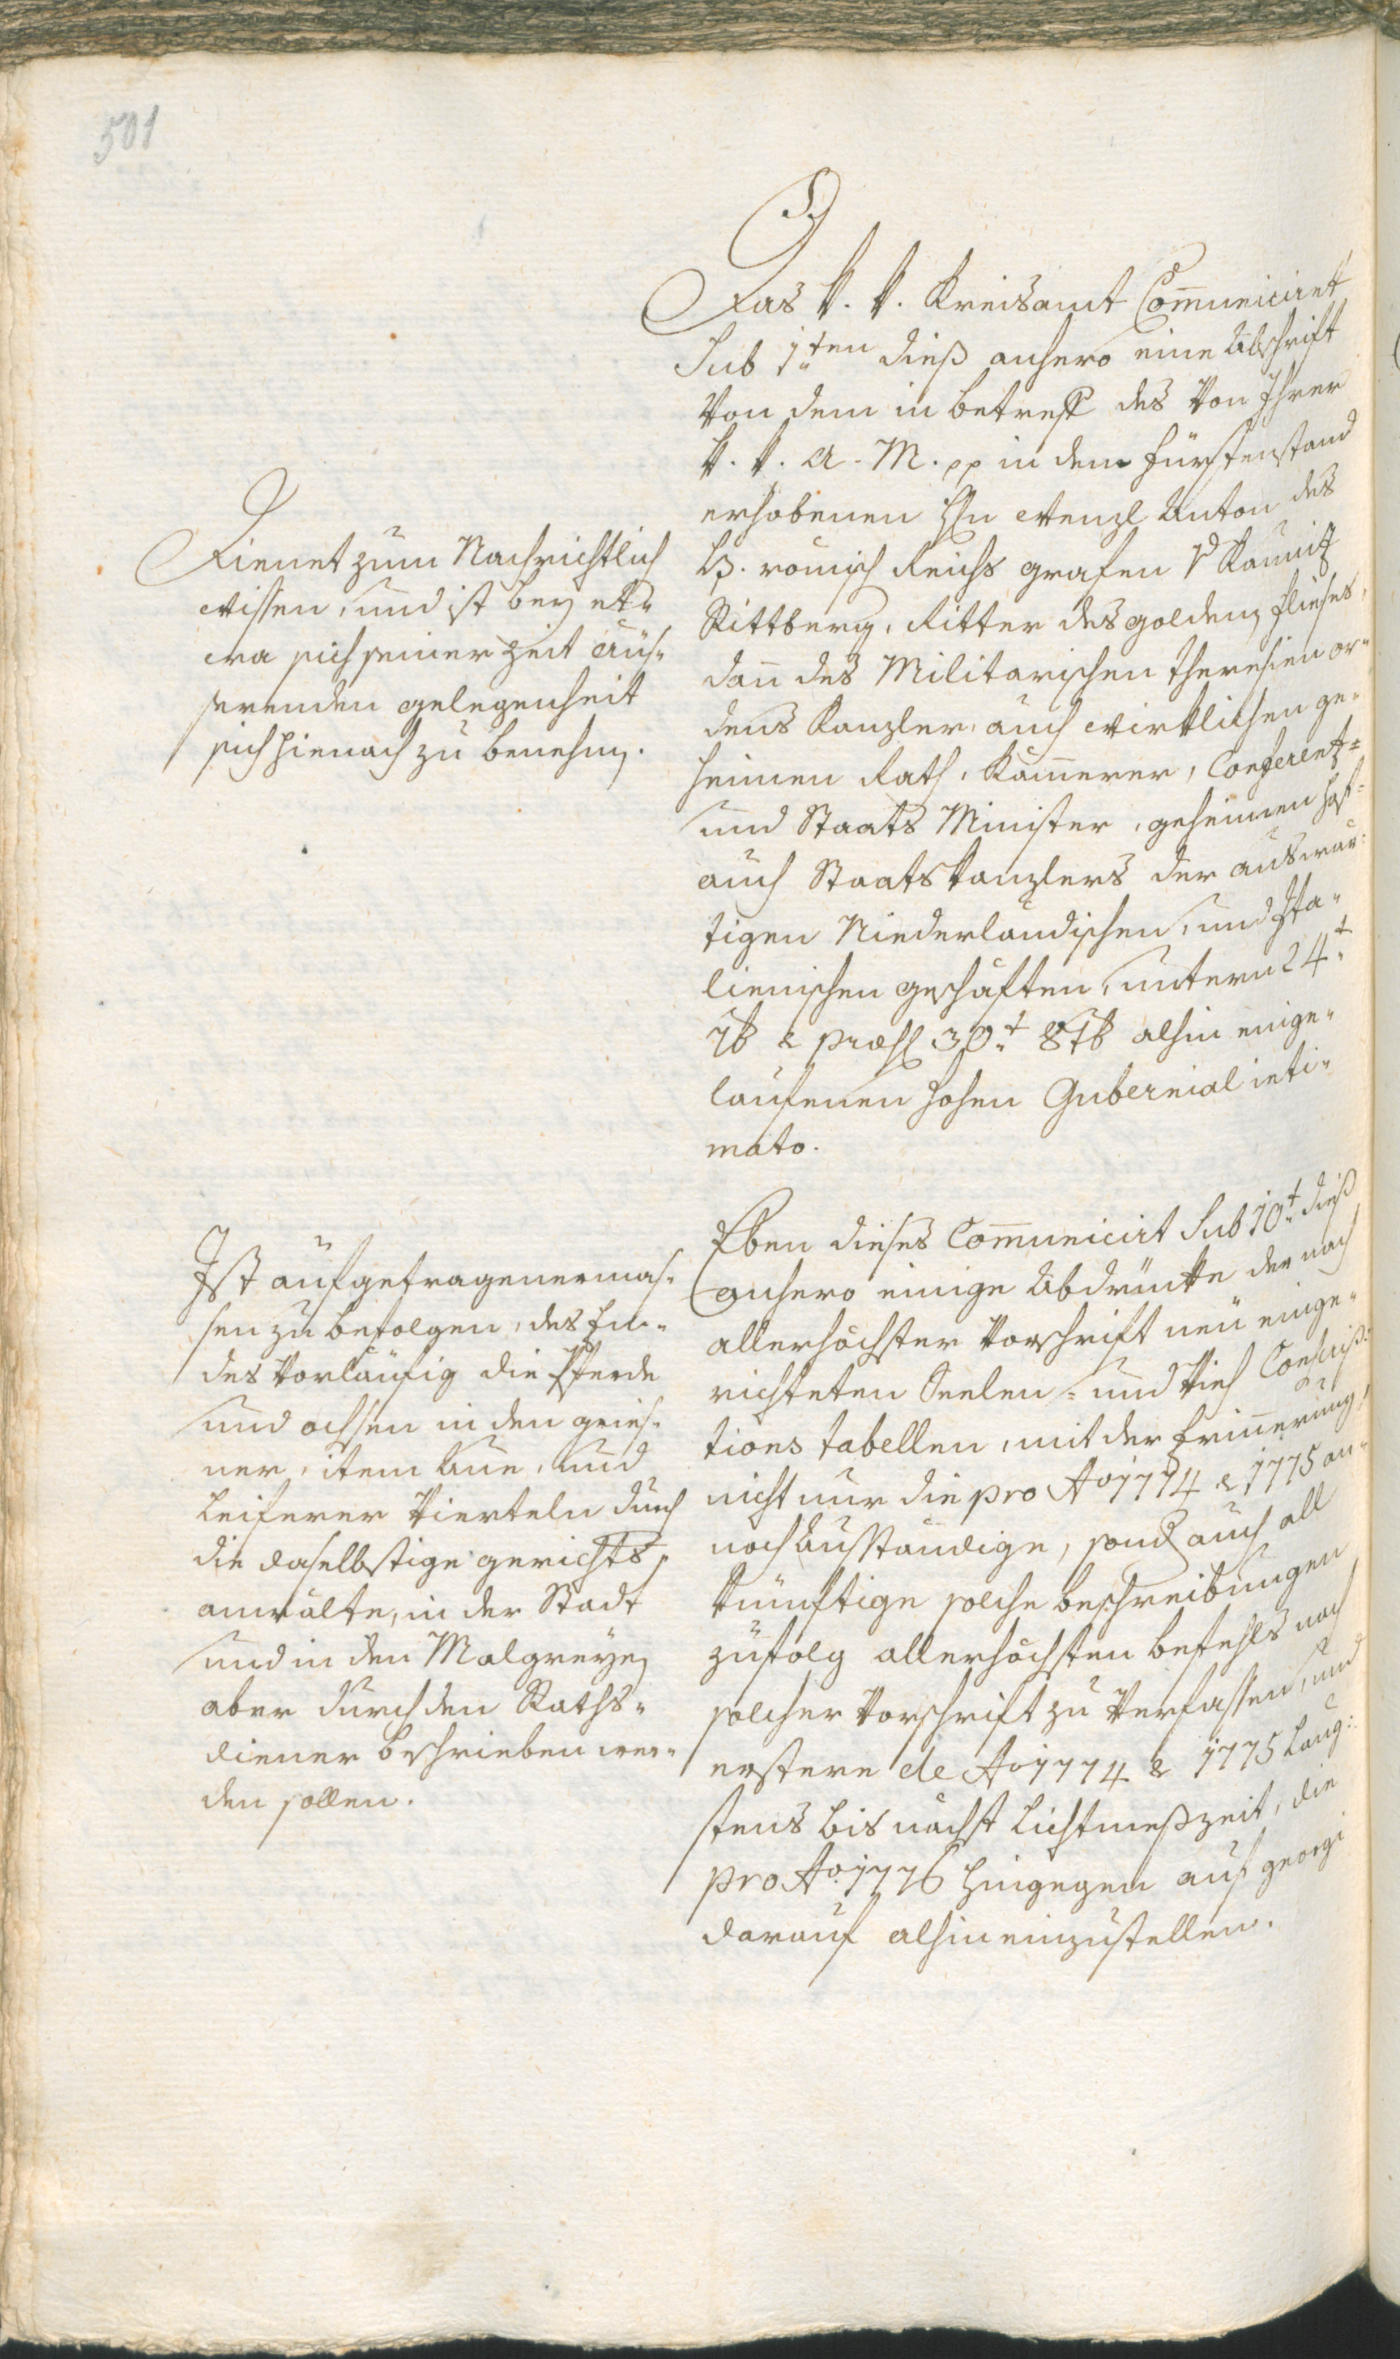 501
Das k. k. Kreisamt Com̄uniciret
Sub 1ten dieß anhero eine Abschrift
Von dem in betreff des Von Ihrer
k. k. A. M. pp in dem fürstenstand
erhobenen Hn Wenzl Anton des
H. römisch Reichs grafen Vd Kaunitz
Rittberg, Ritter des golden flieses,
dan̄ des Militarischen theresien or-
dens Kanzler, auch wirklichen ge-
heimen Rath, Kam̄erer, Conferentz-
und Staats Minister, geheimen hof-
auch Staatskanzlers der auswär-
tigen Niederländischen, und Ita-
lienischen geschäften, untern 24t
7b & præs 30t 8tb alhin einge-
laufenen hohen Gubernial inti-
mato.
Dienet zum Nachrichtlich
wissen, und ist bey et-
wa sich seiner Zeit äus-
serenden gelegenheit
sich hienach zu benehmen.
Eben dieses Com̄unicirt Sub 10t dieß
anhero einige Abdrücke der nach
allerhöchster Vorschrift neü einge-
richteten Seelen- und Vieh Conscrip-
tions tabellen, mit der Erin̄erung,
nicht nur die pro Ao 1774 & 1775 an-
noch Ausständige, sond auch all
künftige solche beschreibungen
zufolg allerhöchsten befehls nach
solcher Vorschrift zu Verfassen, und
erstere de Ao 1774 & 1775 Läng-
stens bis nächst Lichtmeßzeit, die
pro Ao. 1776 hingegen auf georgi
darauf alhin einzustellen.
Ist aufgetragenermas-
sen zu befolgen, des En-
des Vorläufig die Pferde
und ochsen in den gries-
ner, item Aue, und
Leiferer Vierteln durch
die daselbstige gerichts
anwälte, in der Stadt
und in den Malgreyen
aber durch den Raths-
diener beschrieben wer-
den sollen.